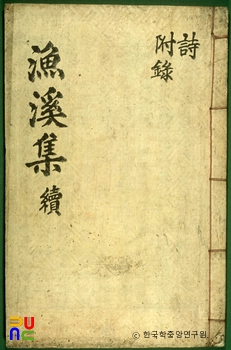 詩
附錄
漁溪集 續
ⓒ한국학중앙연구원